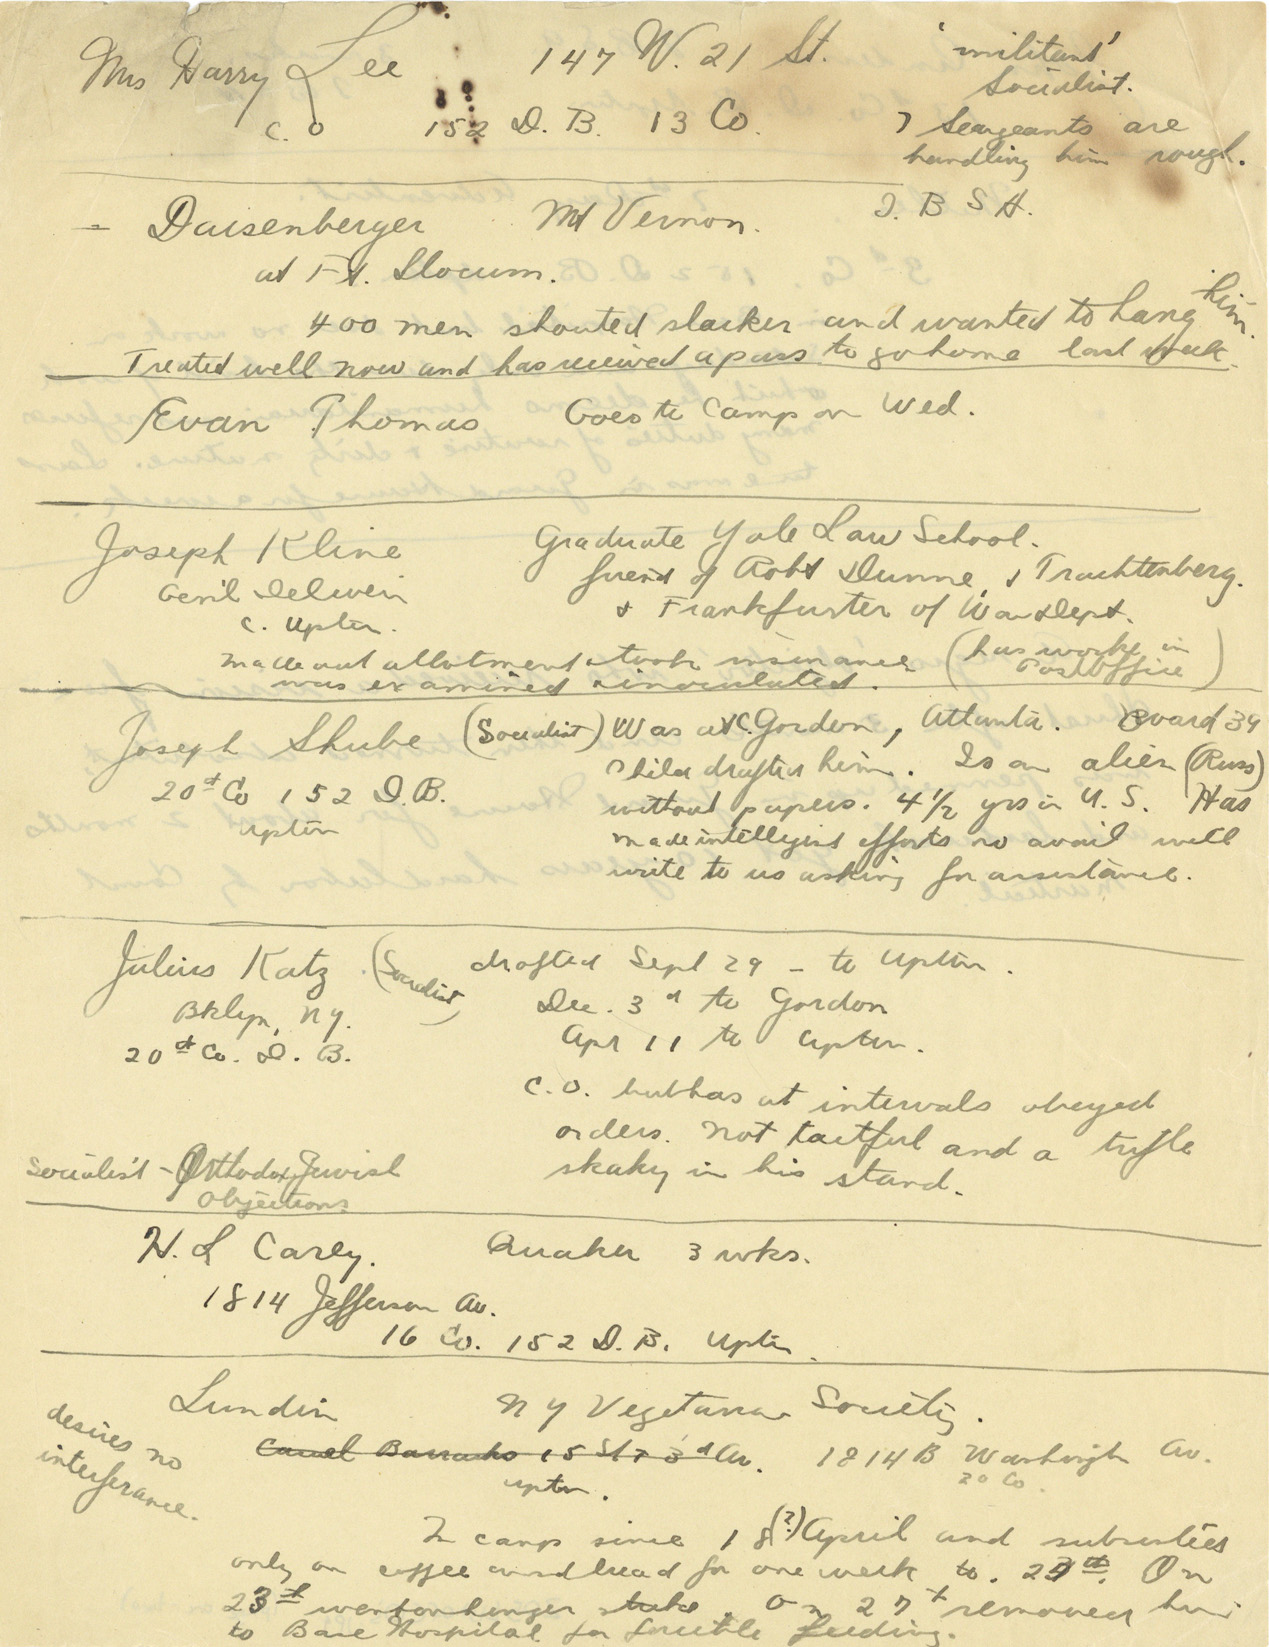 Mrs Harry Lee 147 W. 21 St. 'militant' Socialist.
C.O 152 D. B. 13 Co. 7 Seargeants are
handling him rough.
I. B S A.
- Daisenberger Mt Vernon.
at Ft. Slocum.
400 men shouted slacker and wanted to hang him.
Treated well now and has received a pass to go home last week.
Evan Thomas Goes to Camp on Wed.
Joseph Kline Graduate Yale Law School.
friend of Robt Dunne, & Trachtenberg.
C. Upton. & Frankfurter of War Dept.
made out allotment & took insurance (has worke in Post Office)
was examined & innoculated.
Joseph Shube (Socialist) Was at C. Gordon, Atlanta. Board 39
Phila drafted him. Is an alien (Russ)
20th Co 152 D.B. without papers. 4 1/2 yrs in U. S. Has
Upton made intelligent efforts no avail will
write to us asking for assistance.
Julius Katz (Socialist) drafted Sept 29 - to Upton.
Bklyn, NY. Dec. 3rd to Gordon
20th Co. D. B. Apr 11 to Upton.
C.O. but has at intervals obeyed
orders. Not tactful and a trifle
shaky in his stand.
Socialist - Orthodox Jewish
Objections
H. L Carey. Quaker 3 wks.
1814 Jefferson Av.
16 Co. 152 D. B. Upton.
Lundin N Y Vegetarian Society.
desires no interferance.
Camel Barracks 15 St & 3rd Av. 1814 B Washingtn Av.
Upton. 20 Co.
In camp since 18(?) April and subsisted
only on coffee and bread for one week to . 23rd. On
23rd went on hunger stake. On 27th removed him
to Base Hospital for forcible feeding.